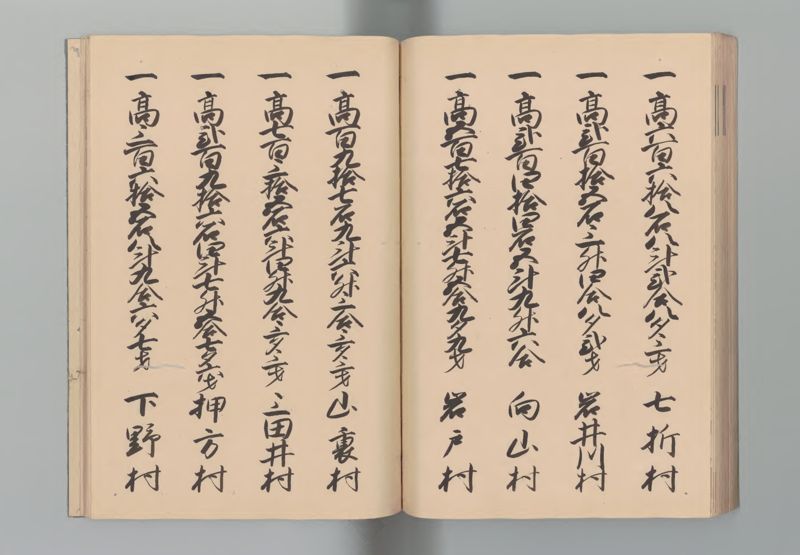 一高六百六拾八石八斗弐合八夕三才 七折村
一高弐百拾五石三升四合八夕弐才 岩井川村
一高弐百四拾四石五斗九升六合 向山村
一高五百七拾六石五斗七升五合九夕九才 岩戸村
一高百九拾七石九斗六升三合三夕三才 山裏村
一高七百三拾五石六斗四升九合三夕三才 三田井村
一高弐百九拾六石四斗七升五合七夕三才 押方村
一高三百六拾五石八斗九合六夕七才 下野村